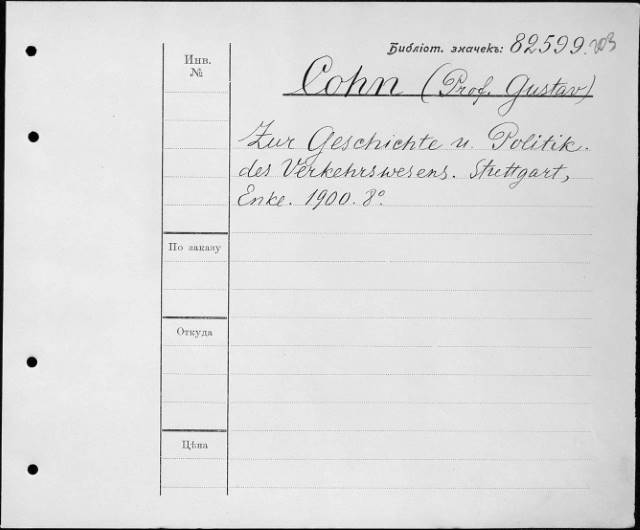 Библіот. значекъ: 82599.203
Инв.
№
Cohn (Prof. Gustav)
Zur Geschichte u. Politik.
des Verkehrswesens. Stuttgart,
Enke. 1900. 8°.
По заказу
Откуда
Цѣна